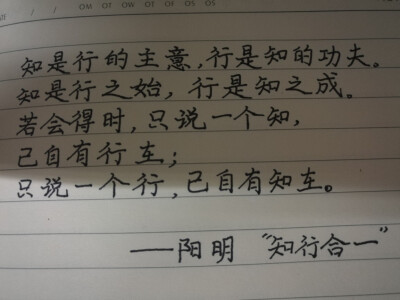 OM OT OW OT OF OS OS
知是行的主意,行是知的功夫。
知是行之始,行是知之成。
若会得时,只说一个知,
已自有行车;
只说一个行,已自有知车。
——阳明 “知行合一”